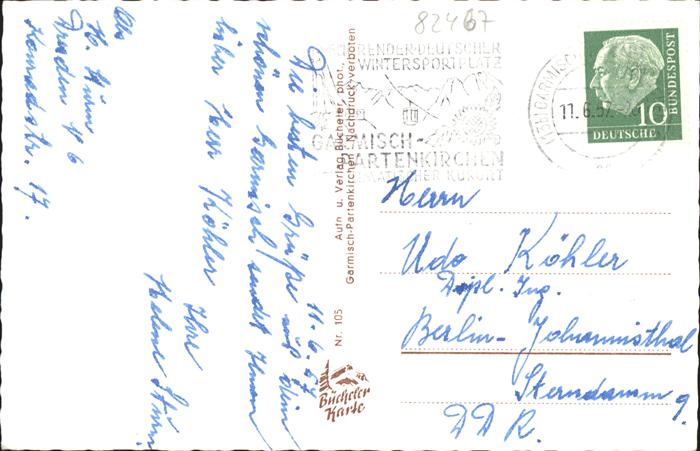 82467
FÜHRENDER DEUTSCHER
WINTERSPORTPLATZ
GARMISCH-
PARTENKIRCHEN
KLIMATISCHER KURORT
(13b) GARMISCH
11.6.57
10
DEUTSCHE
BUNDESPOST
Abs
H. Sturm
Dresden N 6
Konradstr. 17.
11.6.57
Die besten Grüße aus dem
schönen Garmisch sendet Ihnen
lieber Herr Köhler
Ihre
Helene Sturm
Nr. 105
Aufn. u. Verlag Bücheler, phot.
Garmisch-Partenkirchen Nachdruck verboten
Bücheler
Karte
Herrn
Udo Köhler
Dipl. Ing.
Berlin-Johannisthal
Sterndamm 9
DDR.